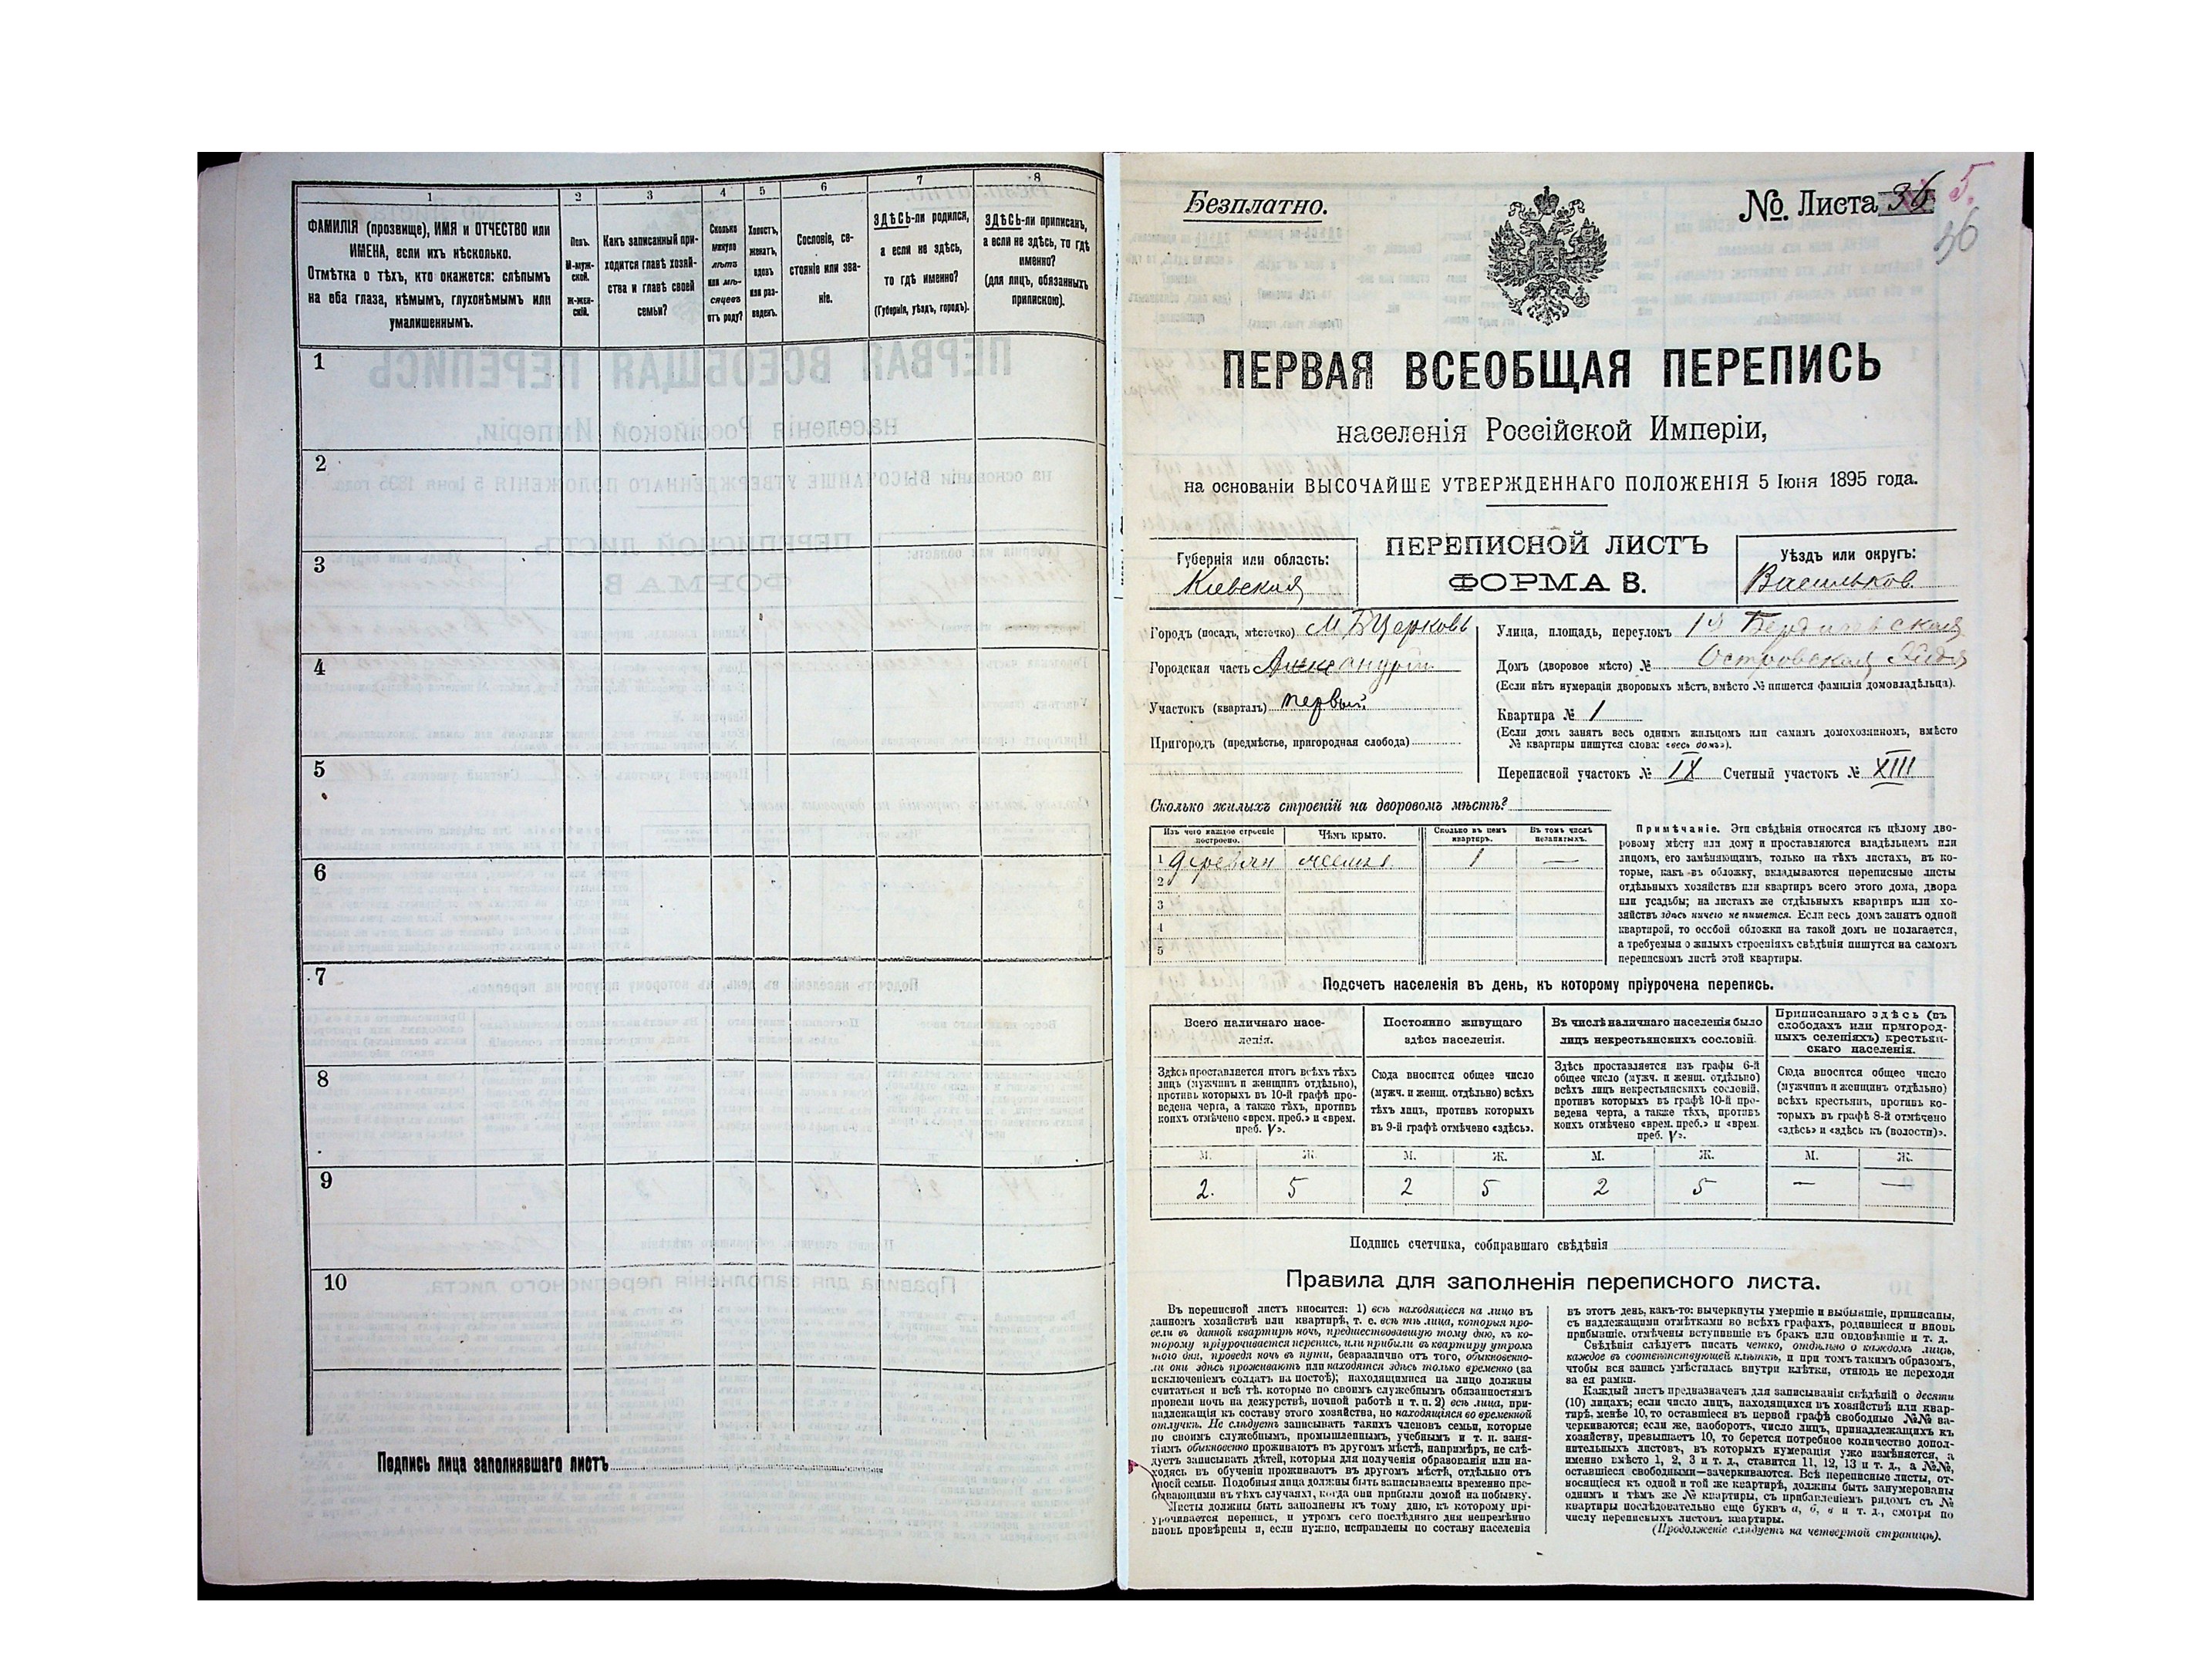 1
2
3
4
5
6
7
8
ФАМИЛІЯ (прозвище), ИМЯ и ОТЧЕСТВО или
ИМЕНА, если ихъ нѣсколько.
Отмѣтка о тѣхъ, кто окажется: слѣпымъ
на оба глаза, нѣмымъ, глухонѣмымъ или
умалишеннымъ.
Полъ.
М-муж-
ской.
Ж-жен-
скій.
Какъ записанный при-
ходится главѣ хозяй-
ства и главѣ своей
семьи?
Сколько
минуло
лѣтъ
или мѣ-
сяцевъ
отъ роду?
Холостъ,
женатъ,
вдовъ
или раз-
веденъ.
Сословіе, со-
стояніе или зва-
ніе.
ЗДѢСЬ-ли родился,
а если не здѣсь,
то гдѣ именно?
(Губернія, уѣздъ, городъ).
ЗДѢСЬ-ли приписанъ,
а если не здѣсь, то гдѣ
именно?
(для лицъ, обязанныхъ
припискою).
1
2
3
4
5
6
7
8
9
10
Подпись лица заполнявшаго листъ
Безплатно.
№. Листа 36 5.
36
ПЕРВАЯ ВСЕОБЩАЯ ПЕРЕПИСЬ
населенія Россійской Имперіи,
на основаніи ВЫСОЧАЙШЕ УТВЕРЖДЕННАГО ПОЛОЖЕНІЯ 5 Іюня 1895 года.
Губернія или область:
Кіевская
ПЕРЕПИСНОЙ ЛИСТЪ
ФОРМА В.
Уѣздъ или округъ:
Васильков.
Городъ (посадъ, мѣстечко) М. Б Церковь
Городская часть
Участокъ (кварталъ) первый
Пригородъ (предмѣстье, пригородная слобода)
Улица, площадь, переулокъ
Домъ (дворовое мѣсто) № Островская
(Если нѣтъ нумераціи дворовыхъ мѣстъ, вмѣсто № пишется фамилія домовладѣльца).
Квартира № 1
(Если домъ занятъ весь однимъ жильцомъ или самимъ домохозяиномъ, вмѣсто
№ квартиры пишутся слова: «весь домъ»).
Переписной участокъ № IX Счетный участокъ № XIII
Сколько жилыхъ строеній на дворовомъ мѣстѣ?
Изъ чего каждое строеніе
построено.
Чѣмъ крыто.
Сколько въ немъ
квартиръ.
Въ томъ числѣ
незанятыхъ.
1 деревян 1 —
2
3
4
5
Примѣчаніе. Эти свѣдѣнія относятся къ цѣлому дво-
ровому мѣсту или дому и проставляются владѣльцемъ или
лицомъ, его замѣняющимъ, только на тѣхъ листахъ, въ ко-
торые, какъ въ обложку, вкладываются переписные листы
отдѣльныхъ хозяйствъ или квартиръ всего этого дома, двора
или усадьбы; на листахъ же отдѣльныхъ квартиръ или хо-
зяйствъ здѣсь ничего не пишется. Если весь домъ занятъ одной
квартирой, то особой обложки на такой домъ не полагается,
а требуемыя о жилыхъ строеніяхъ свѣдѣнія пишутся на самомъ
переписномъ листѣ этой квартиры.
Подсчетъ населенія въ день, къ которому пріурочена перепись.
Всего наличнаго насе-
ленія.
Здѣсь проставляется итогъ всѣхъ тѣхъ
лицъ (мужчинъ и женщинъ отдѣльно),
противъ которыхъ въ 10-й графѣ про-
ведена черта, а также тѣхъ, противъ
коихъ отмѣчено «врем. преб.» и «врем.
преб. V».
Постоянно живущаго
здѣсь населенія.
Сюда вносится общее число
(мужч. и женщ. отдѣльно) всѣхъ
тѣхъ лицъ, противъ которыхъ
въ 9-й графѣ отмѣчено «здѣсь».
Въ числѣ наличнаго населенія было
лицъ некрестьянскихъ сословій.
Здѣсь проставляется изъ графы 6-й
общее число (мужч. и женщ. отдѣльно)
всѣхъ лицъ некрестьянскихъ сословій.
противъ которыхъ въ графѣ 10-й про-
ведена черта, а также тѣхъ, противъ
коихъ отмѣчено «врем. преб.» и «врем.
преб. V».
Приписаннаго здѣсь (въ
слободахъ или пригород-
ныхъ селеніяхъ) крестьян-
скаго населенія.
Сюда вносится общее число
(мужчинъ и женщинъ отдѣльно)
всѣхъ крестьянъ, противъ ко-
торыхъ въ графѣ 8-й отмѣчено
«здѣсь» и «здѣсь къ (волости)».
М. Ж. М. Ж. М. Ж. М. Ж.
2. 5 2 5 2 5 — —
Подпись счетчика, собиравшаго свѣдѣнія
Правила для заполненія переписного листа.
Въ переписной листъ вносятся: 1) всѣ находящіеся на лицо въ
данномъ хозяйствѣ или квартирѣ, т. е. всѣ тѣ лица, которыя про-
вели въ данной квартирѣ ночь, предшествовавшую тому дню, къ ко-
торому пріурочивается перепись, или прибыли въ квартиру утромъ
того дня, проведя ночь въ пути, безразлично отъ того, обыкновенно-
ли они здѣсь проживаютъ или находятся здѣсь только временно (за
исключеніемъ солдатъ на постоѣ); находящимися на лицо должны
считаться и всѣ тѣ, которые по своимъ служебнымъ обязанностямъ
провели ночь на дежурствѣ, ночной работѣ и т. п. 2) всѣ лица, при-
надлежащія къ составу этого хозяйства, но находящіяся во временной
отлучкѣ. Не слѣдуетъ записывать такихъ членовъ семьи, которые
по своимъ служебнымъ, промышленнымъ, учебнымъ и т. п. заня-
тіямъ обыкновенно проживаютъ въ другомъ мѣстѣ, напримѣръ, не слѣ-
дуетъ записывать дѣтей, которыя для полученія образованія или на-
ходясь въ обученіи проживаютъ въ другомъ мѣстѣ, отдѣльно отъ
своей семьи. Подобныя лица должны быть записываемы временно пре-
бывающими въ тѣхъ случаяхъ, когда они прибыли домой на побывку.
Листы должны быть заполнены къ тому дню, къ которому прі-
урочивается перепись, и утромъ сего послѣдняго дня непремѣнно
вновь провѣрены и, если нужно, исправлены по составу населенія
въ этотъ день, какъ-то: вычеркнуты умершіе и выбывшіе, приписаны,
съ надлежащими отмѣтками во всѣхъ графахъ, родившіеся и вновь
прибывшіе, отмѣчены вступившіе въ бракъ или овдовѣвшіе и т. д.
Свѣдѣнія слѣдуетъ писать четко, отдѣльно о каждомъ лицѣ,
каждое въ соотвѣтствующей клѣткѣ, и при томъ такимъ образомъ,
чтобы вся запись умѣстилась внутри клѣтки, отнюдь не переходя
за ея рамки.
Каждый листъ предназначенъ для записыванія свѣдѣній о десяти
(10) лицахъ; если число лицъ, находящихся въ хозяйствѣ или квар-
тирѣ, менѣе 10, то оставшіеся въ первой графѣ свободные №№ за-
черкиваются; если же, наоборотъ, число лицъ, принадлежащихъ къ
хозяйству, превышаетъ 10, то берется потребное количество допол-
нительныхъ листовъ, въ которыхъ нумерація уже измѣняется, а
именно вмѣсто 1, 2, 3 и т. д., ставится 11, 12, 13 и т. д., а №№,
оставшіеся свободными—зачеркиваются. Всѣ переписные листы, от-
носящіеся къ одной и той же квартирѣ, должны быть занумерованы
однимъ и тѣмъ же № квартиры, съ прибавленіемъ рядомъ съ №
квартиры послѣдовательно еще буквъ а, б, в и т. д., смотря по
числу переписныхъ листовъ квартиры.
(Продолженіе слѣдуетъ на четвертой страницѣ).